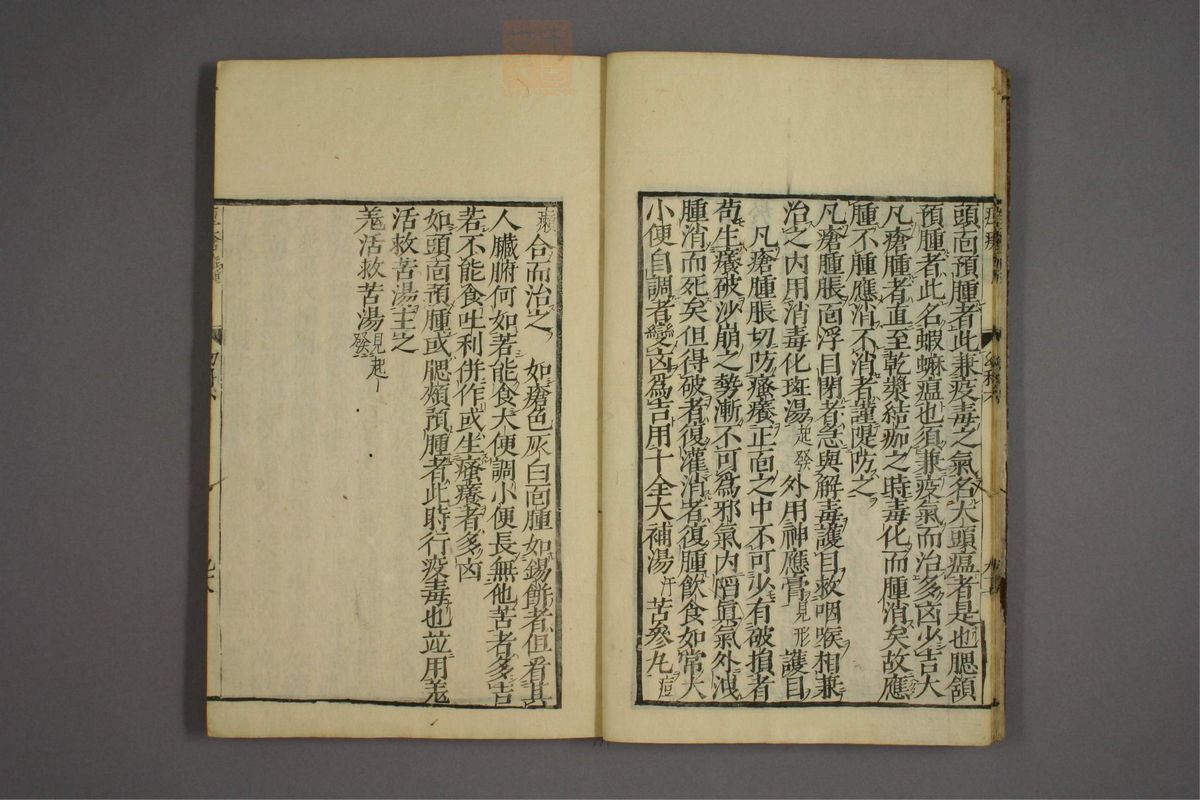 頭面預腫者此兼疫毒之氣名大頭瘟者是也腮頷
預腫者此名蝦蟆瘟也須兼疫氣而治多凶少吉大
凡瘡腫者直至乾漿結痂之時毒化而腫消矣故應
腫不腫應消不消者謹隄防之
凡瘡腫脹面浮目閉者急與解毒護目救咽喉相兼
治之内用消毒化斑湯起發 外用神應膏見形 護目
凡瘡腫脹切防瘙癢正面之中不可少有破損者
苟生癢破沙崩之勢漸不可爲邪氣内罔眞氣外洩
腫消而死矣但得破者復灌消者復腫飲食如常大
小便自調者變凶爲吉用十全大補湯汗 苦參丸痘
癩合而治之 如瘡色灰白面腫如錫餅者但看其
人臟腑何如若能食大便調小便長無他苦者多吉
若不能食吐利併作或生瘙癢者多凶
如頭面預腫或腮頰預腫者此時行疫毒也並用羗
活救苦湯主之
羗活救苦湯見起發